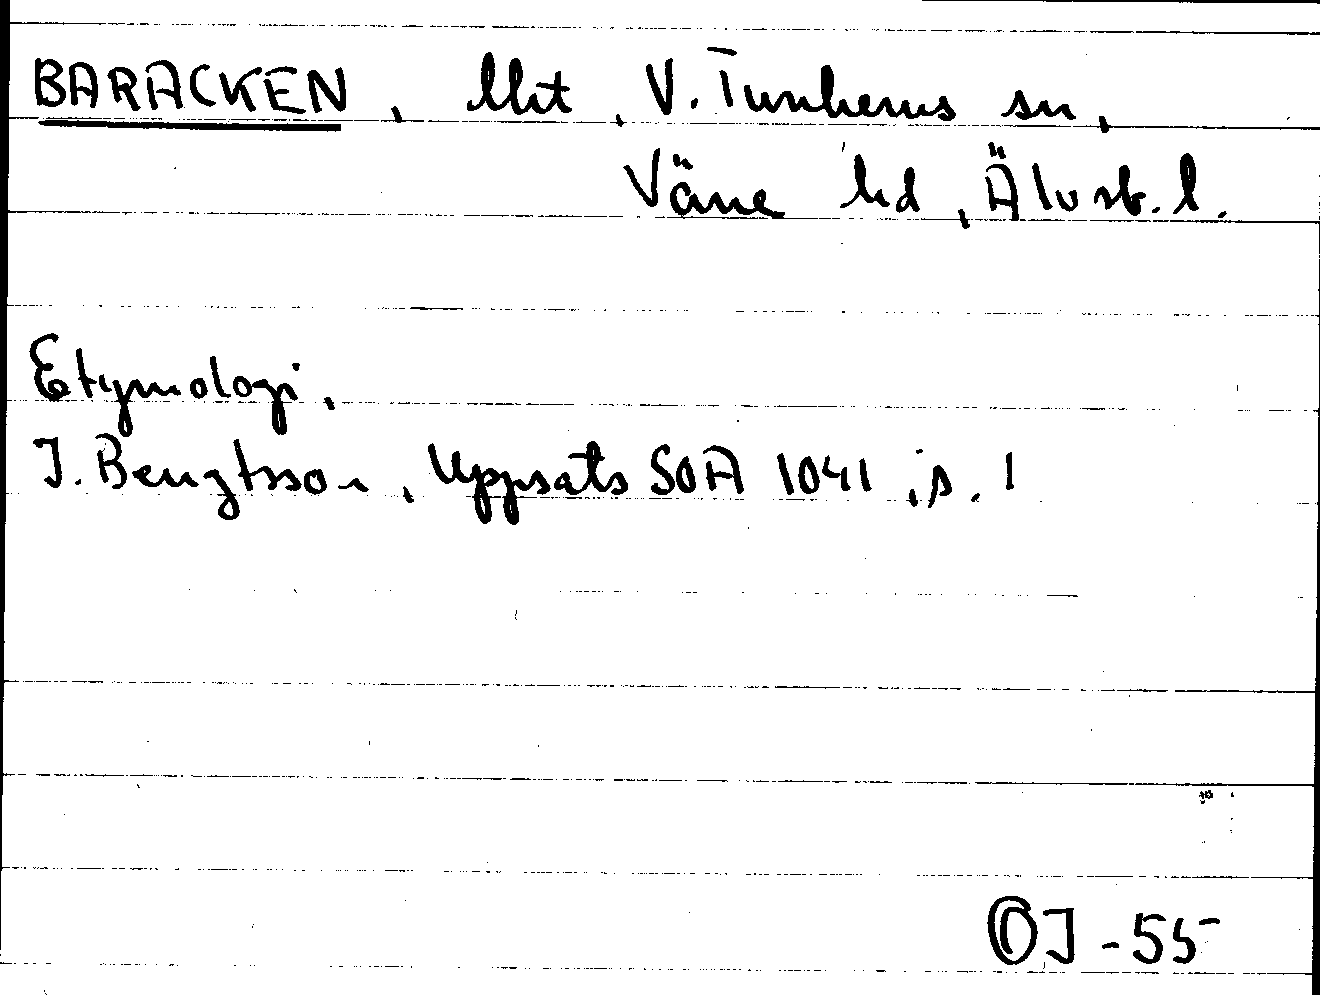 BARACKEN, lht, V. Tunhems sn,
Väne hd, Älvsb. l.
Etymologi,
I. Bengtsson, Uppsats SOA 1041, s. 1
OJ-55